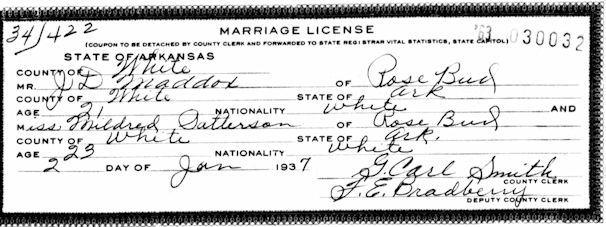 34/422
MARRIAGE LICENSE
(COUPON TO BE DETACHED BY COUNTY CLERK AND FORWARDED TO STATE REGISTRAR VITAL STATISTICS, STATE CAPITOL) '63 030032
STATE OF ARKANSAS
COUNTY OF White
MR. J D Maddox OF Rose Bud
COUNTY OF White STATE OF Ark
AGE 21 NATIONALITY White AND
Miss Mildred Patterson OF Rose Bud
COUNTY OF White STATE OF Ark.
AGE 23 NATIONALITY White
2 DAY OF Jan 1937 G. Carl Smith
COUNTY CLERK
F. E. Bradberry
DEPUTY COUNTY CLERK